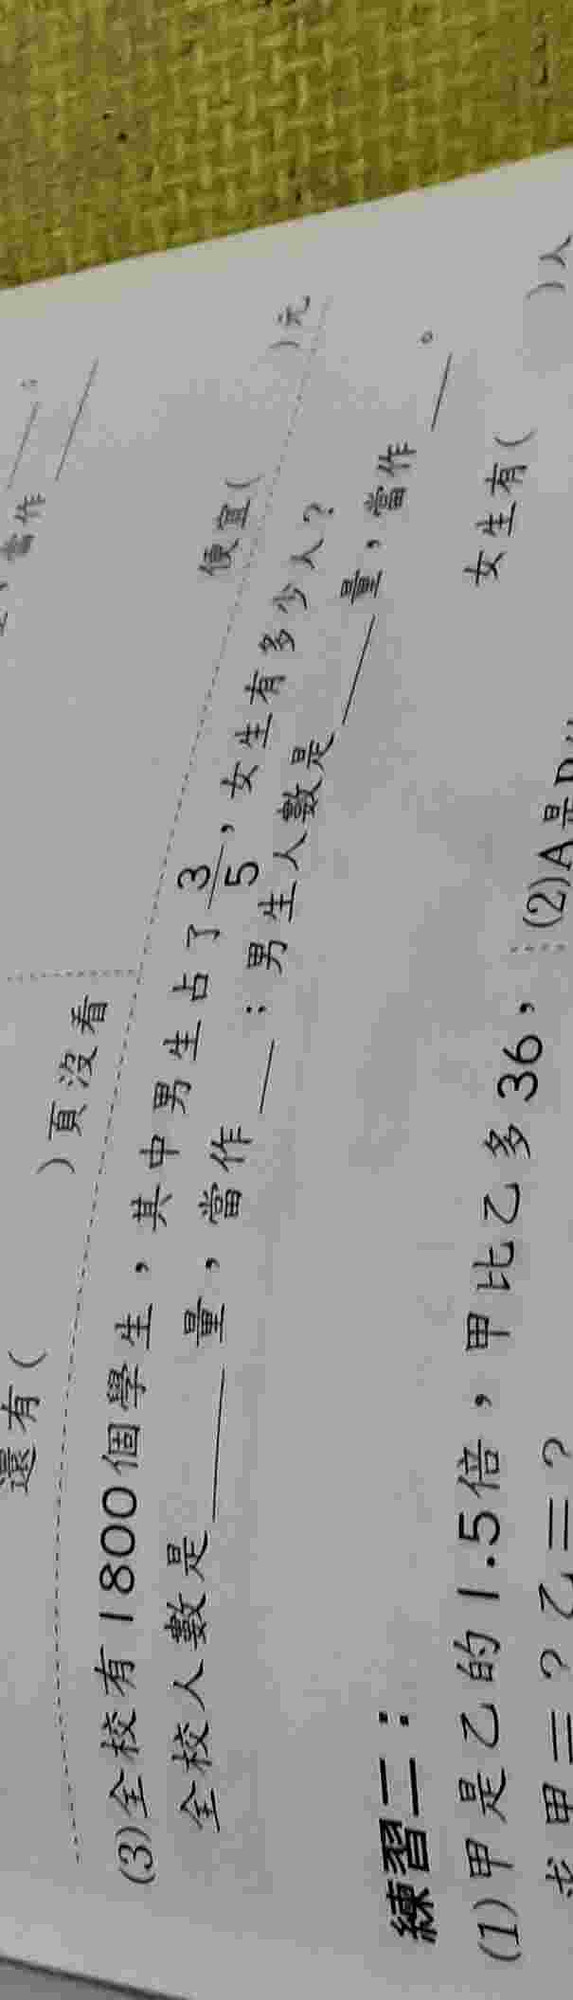 當作
還有( )頁沒看
便宜( )元
(3)全校有1800個學生，其中男生占了3/5，女生有多少人？
全校人數是____量，當作____：男生人數是____量，當作____。
女生有( )人
練習二：
(1)甲是乙的1.5倍，甲比乙多36，
求甲＝？乙＝？
(2)A是